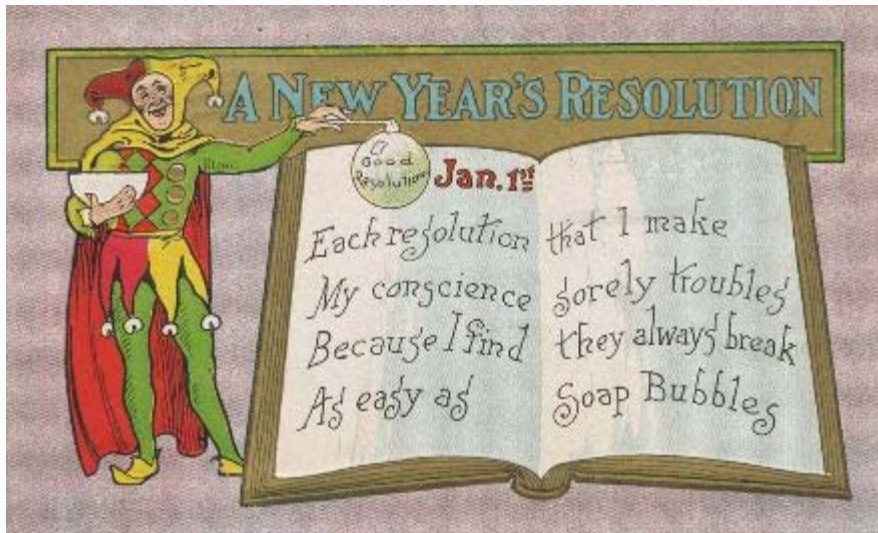 A NEW YEAR'S RESOLUTION
A
Good
Resolution
Jan. 1st
Each resolution that I make
My conscience sorely troubles
Because I find they always break
As easy as Soap Bubbles